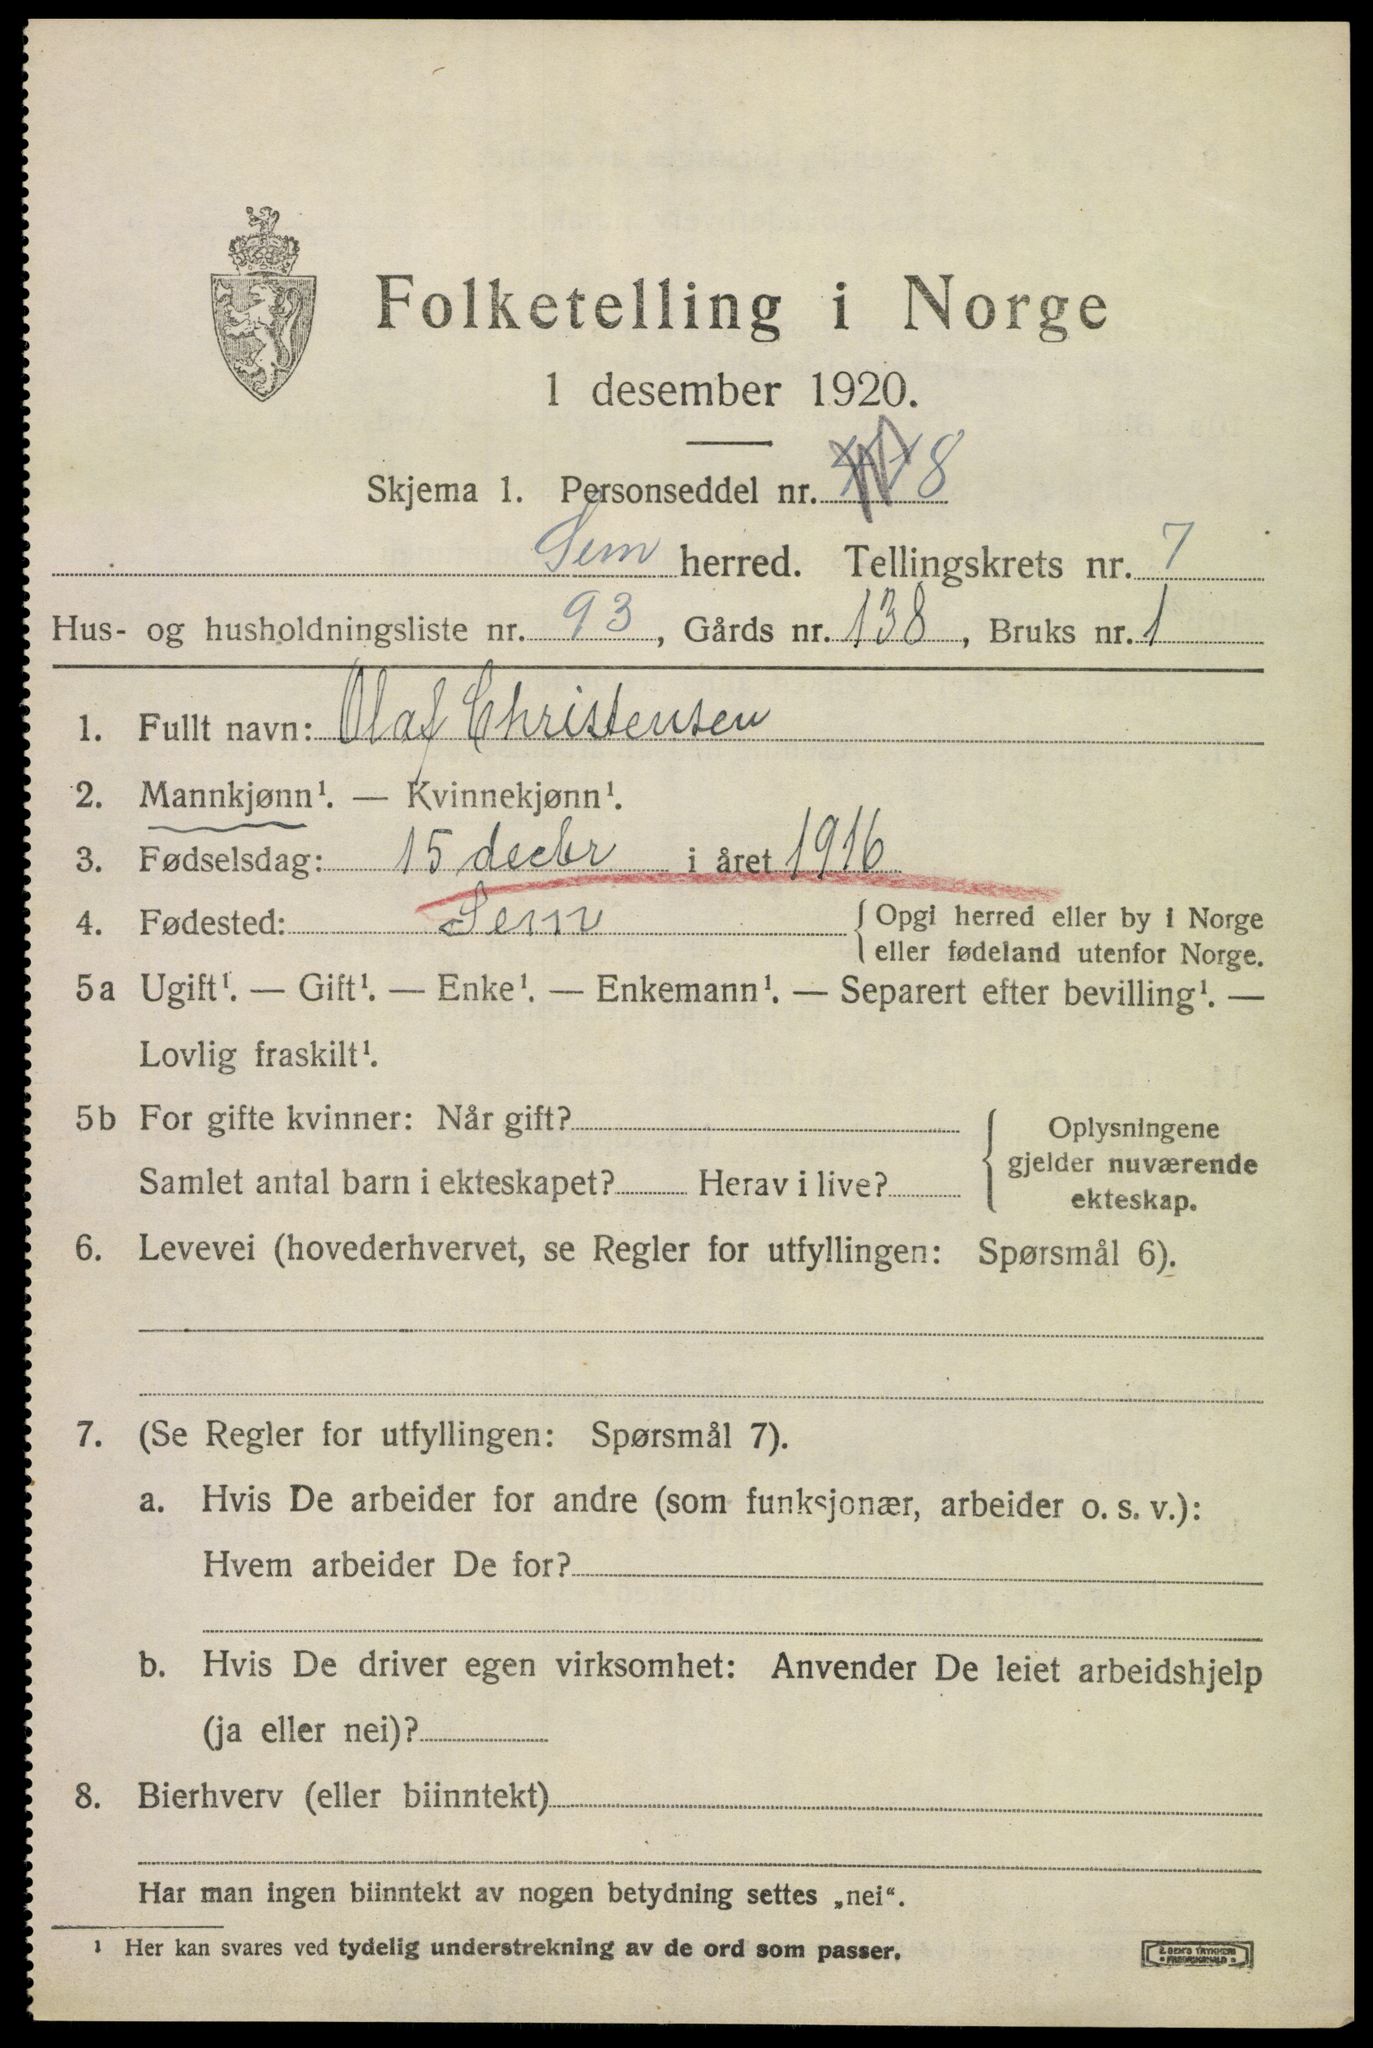 Folketelling i Norge
1 desember 1920.
Skjema 1. Personseddel nr. 8
Sem herred. Tellingskrets nr. 7
Hus- og husholdningsliste nr. 93, Gårds nr. 138, Bruks nr. 1
1. Fullt navn: Olaf Christensen
2. Mannkjønn¹. — Kvinnekjønn¹.
3. Fødselsdag: 15 decbr i året 1916
4. Fødested: Sem { Opgi herred eller by i Norge
eller fødeland utenfor Norge.
5a Ugift¹. — Gift¹. — Enke¹. — Enkemann¹. — Separert efter bevilling¹. —
Lovlig fraskilt¹.
5b For gifte kvinner: Når gift?
Samlet antal barn i ekteskapet? Herav i live?
Oplysningene
gjelder nuværende
ekteskap.
6. Levevei (hovederhvervet, se Regler for utfyllingen: Spørsmål 6).
7. (Se Regler for utfyllingen: Spørsmål 7).
a. Hvis De arbeider for andre (som funksjonær, arbeider o. s. v.):
Hvem arbeider De for?
b. Hvis De driver egen virksomhet: Anvender De leiet arbeidshjelp
(ja eller nei)?
8. Bierhverv (eller biinntekt)
Har man ingen biinntekt av nogen betydning settes „nei“.
¹ Her kan svares ved tydelig understrekning av de ord som passer.